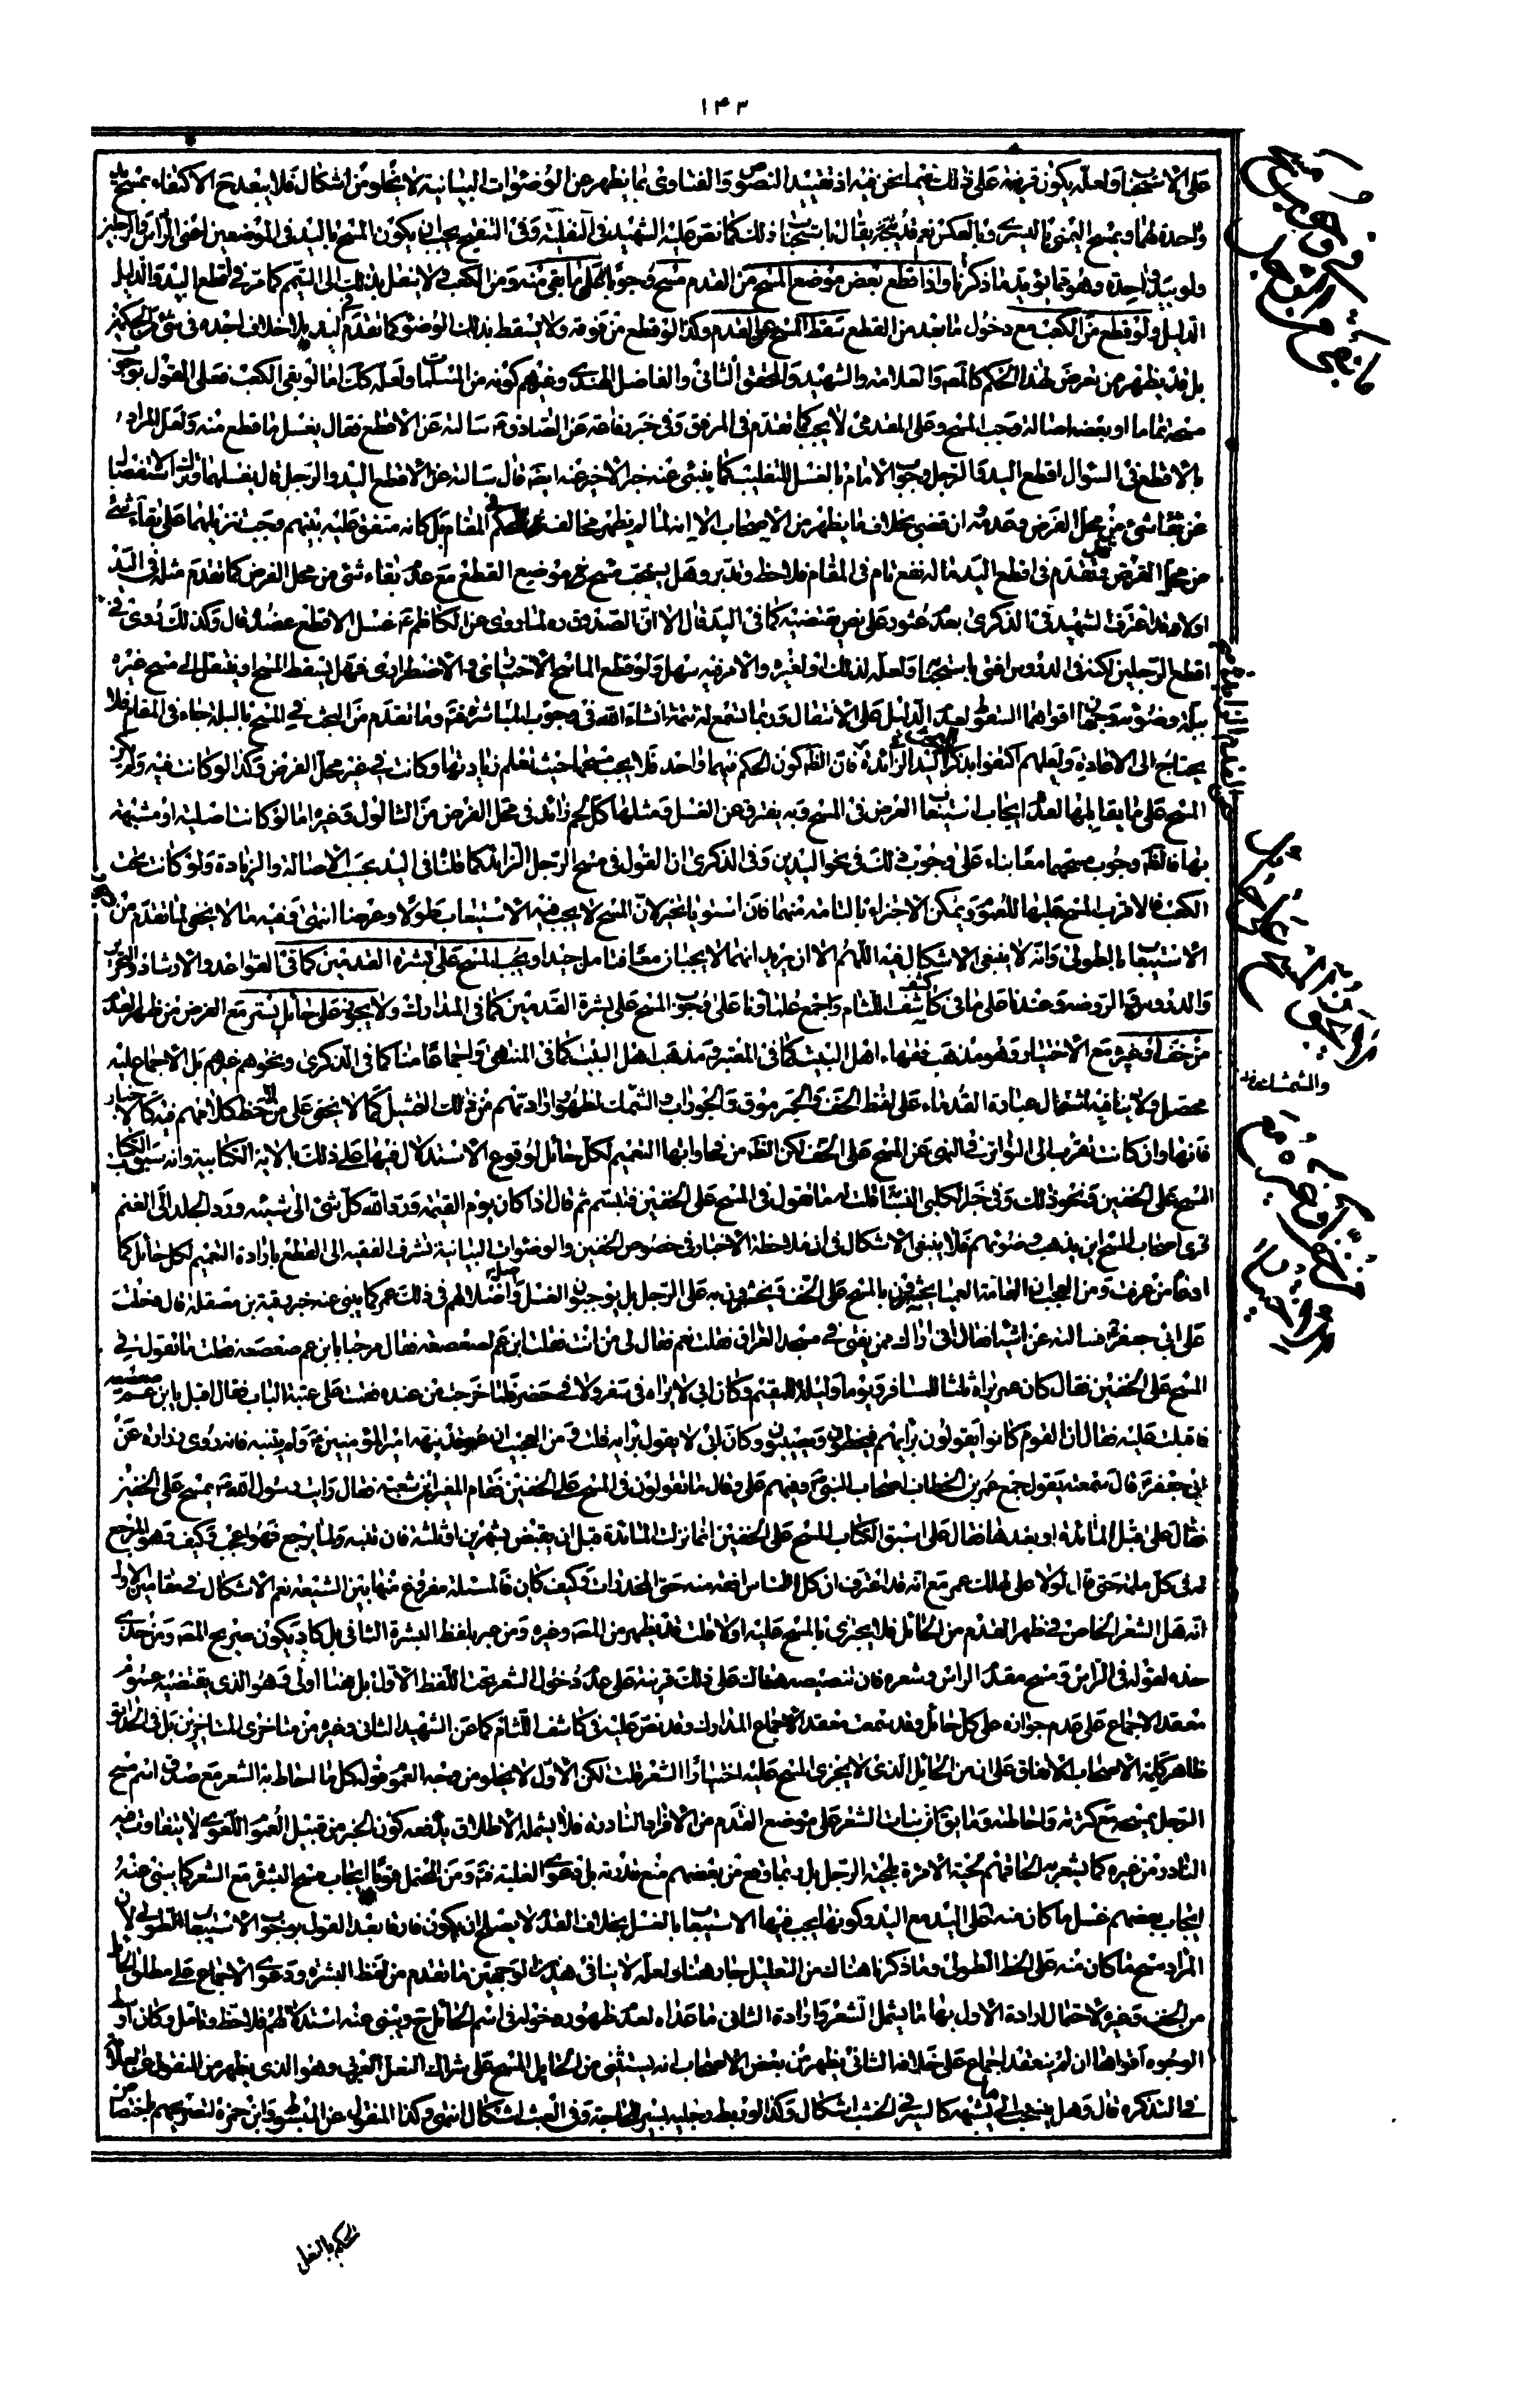 ١٤٣
على الاستحباب ولعله يكون قرينة على ذلك فيما نحن فيه اذ تقييد النصوص والفتاوى بما يظهر من الوضوءات البيانية لا يخلو من اشكال فلا يبعد ح الاكتفاء بمسح
واحدة لهما وبمسح اليمنى باليسرى وبالعكس نعم قد يقال باستحباب ذلك كما نص عليه الشهيد في النفلية وفي التنقيح يجب ان يكون المسح باليد في الموضعين اعنى الرأس والرجلين
ولو بيد واحدة وهو مما يؤيد ما ذكرنا واذا قطع بعض موضع المسح من القدم مسح وجوبا على ما بقى منه ومن الكعب ولا ينتقل بذلك الى التيمم كما مر في اقطع اليد والدليل
الدليل ولو قطع من الكعب مع دخول ما بعد من القطع سقط المسح على القدم وكذا لو قطع من فوقه ولا يسقط بذلك الوضوء كما تقدم في اليد بلا خلاف اجده في شئ من الحكمين
بل قد يظهر من تعرض لهذا الحكم كالمصنف والعلامة والشهيد والمحقق الثاني والفاضل الهندي وغيرهم كونه من المسلمات ولعله كك اما لو بقى الكعب فعلى القول بوجوب
مسحه تماما او بعضه اصالة وجب المسح وعلى المقدمى لا يجب كما تقدم في المرفق وفي خبر رفاعة عن الصادق ع سالته عن الاقطع فقال يغسل ما قطع منه ولعل المراد
بالاقطع في السؤال اقطع اليد والرجل وجواب الامام بالغسل للتغليب كما ينبئ عنه خبر الاخر عنه ايضا قال سالته عن الاقطع اليد والرجل قال يغسلهما وترك الاستفصال
عن بقاء شئ من محل الفرض وعدمه ان قضى بخلاف ما يظهر من الاصحاب الا انه لما لم يظهر مخالف في الحكم المقام بل كانه متفق عليه بينهم وجب تنزيلهما على بقاء شئ
من محل الفرض وقد تقدم في اقطع اليد ما له نفع تام في المقام فلاحظ وتدبر وهل يستحب مسح موضع القطع مع عدم بقاء شئ من محل الفرض كما تقدم مثله في اليد
اولا وقد اعترف الشهيد في الذكرى بعدم عثوره على نص يقتضيه كما في اليد قال الا ان الصدوق ره لما روى عن الكاظم ع غسل الاقطع عضده قال وكذلك روى في
اقطع الرجلين لكنه في الدروس افتى باستحبابه ولعله لذلك او لغيره والامر فيه سهل ولو قطع الماسح الاختياري او الاضطراري فهل يسقط المسح او ينتقل الى مسح غيره
ببلة وضوئه وجهان اقواهما السقوط لعدم الدليل على الانتقال وربما تسمع له تتمة انشاء الله في وجوب المباشرة وما تقدم من البحث في المسح بالبلة جاء في المقام فلا
يحتاج الى الاعادة ولعلهم اكتفوا بذكر البحث في اليد الزائدة فان الظ كون الحكم فيهما واحد فلا يجب مسحها حيث تعلم زيادتها وكانت في غير محل الفرض وكذا لو كانت فيه ولم
المسح على ما يقابلها لعدم ايجاب استيعاب العرض في المسح وبه يفترق عن الغسل ومثلها كل لحم زائد في محل الفرض من الثالول وغيره اما لو كانت اصلية او مشتبهة
بها فالظ وجوب مسحهما معا بناء على وجوب ذلك في نحو اليدين وفي الذكرى ان القول في مسح الرجل الزائد كما قلنا في اليد بحسب الاصالة والزيادة ولو كانت تحت
الكعب فالاقرب المسح عليها للعموم ويمكن الاجتزاء بالتامة منهما فان استويا تخير لان المسح لا يجب فيه الاستيعاب طولا وعرضا انتهى وفيه ما لا يخفى لما تقدم من
الاستيعاب الطولى وانه لا ينبغى الاشكال فيه اللهم الا ان يريد انهما لا يجبان معا فتامل جيدا ويجب المسح على بشرة القدمين كما في القواعد والارشاد
والدروس والروضة وعندنا على ما في كاشف اللثام واجمع علماؤنا على وجوب المسح على بشرة القدمين كما في المدارك ولا يجوز على حائل يستر مع الفرض من ظهر القدم
من خف او غيره مع الاختيار وهو مذهب فقهاء اهل البيت كما في المعتبر ومذهب اهل البيت كما في المنتهى واجماعا منا كما في الذكرى ونحوهم غيرهم بل الاجماع عليه
محصل ولا ينافيه اشتمال عبارة القدماء على لفظ الخف والجرموق والجوراب والشمشك لظهور ارادتهم من ذلك التمثيل كما لا يخفى على من لاحظ كلامهم فيه كالاخبار
فانها وان كانت تقرب الى التواتر في النهى عن المسح على الخف لكن الظ من فحاويها التعميم لكل حائل لوقوع الاستدلال فيها على ذلك بالاية الكتابية وانه سبق الكتاب
المسح على الخفين ونحو ذلك وفي خبر الكلبى النسابة قلت له ما تقول في المسح على الخفين فتبسم ثم قال اذا كان يوم القيمة ورد الله كل شئ الى شيئه ورد الجلد الى الغنم
فترى اصحاب المسح اين يذهب وضوئهم فلا ينبغى الاشكال في ان ملاحظة الاخبار في خصوص الخفين والوضوءات البيانية تشرف الفقيه الى القطع بارادة التعميم لكل حائل كما
ادعاه من عرفت ومن العجب ان العامة العمياء يجتزون بالمسح على الخف ولا يجتزون به على الرجل بل يوجبون الغسل واصل ضلالهم في ذلك عمر كما ينبئ عنه خبر رقبة بن مصقلة قال دخلت
على ابي جعفر ع فسالته عن اشياء فقال انى اراك ممن يفتى في مسجد العراق فقلت نعم فقال لى من انت فقلت ابن عم لصعصعة فقال مرحبا بابن عم صعصعة فقلت ما تقول في
المسح على الخفين فقال كان عمر يراه ثلثا للمسافر ويوما وليلة للمقيم وكان ابى لا يراه في سفر ولا في حضر فلما خرجت من عنده فقمت على عتبة الباب فقال اقبل يا بن عم صعصعة
فاقبلت عليه فقال ان القوم كانوا يقولون برأيهم فيخطؤن ويصيبون وكان ابى لا يقول برأيه قلت ومن العجب ان عمر قد نبهه امير المؤمنين ع ولم ينتبه فانه روى زرارة عن
ابى جعفر ع قال سمعته يقول جمع عمر بن الخطاب اصحاب النبى ص وفيهم على وقال ما تقولون في المسح على الخفين فقام المغيرة بن شعبة فقال رايت رسول الله ص يمسح على الخفين
فقال على ع قبل المائدة او بعدها فقال على ع سبق الكتاب المسح على الخفين انما نزلت المائدة قبل ان يقبض بشهرين او ثلثة فان نبهه ولما يرجع فهو اعجب وكيف وهو المرجع
له في كل ملمة حتى قال لولا على لهلك عمر مع انه قد اعترف ان كل الناس افقه منه حتى المخدرات وكيف كان فالمسئلة مفروغ منها بين الشيعة نعم الاشكال في مقامين الاول
انه هل الشعر الخاص في ظهر القدم من الحائل فلا يجتزى بالمسح عليه اولا قلت قد يظهر من المصنف وغيره ومن عبر بلفظ البشرة الثاني بل كاد يكون صريح المصنف ومن حذى
حذوه لقوله في الرأس ومسح مقدم الراس وشعره فان تنصيصه هناك على ذلك قرينة على عدم دخول الشعر تحت اللفظ الاول بل هنا اولى وهو الذى يقتضيه عموم
معقد الاجماع على عدم جوازه على كل حائل وقد سمعت معقد الاجماع المدارك وقد نص عليه في كاشف اللثام كما عن الشهيد الثانى وغيره من متاخرى المتاخرين بل في الحدائق
ظاهر كلمة الاصحاب الاتفاق على ان من الحائل الذى لا يجزى المسح عليه اختيارا الشعر قلت لكن الاول لا يخلو من وجه لعموم قوله كل ما احاط به الشعر مع صدق اسم مسح
الرجل بمسحه مع كثرته واحاطته وما يق ان نبات الشعر على موضع القدم من الافراد النادرة فلا يشمله الاطلاق يدفعه كون الخبر من قبيل العموم اللغوى لا يتفاوت فيه
النادر من غيره كما يشعر به الحاقهم لحية الامرة بلحية الرجل بل ربما وقع من بعضهم منع ندرته بل دعوى الغلبة فيه ومن المحتمل قويا ايجاب مسح البشرة مع الشعر كما ينبئ عنه
ايجاب بعضهم غسل ما كان منه على اليد مع اليد وكونها يجب فيها الاستيعاب بالغسل بخلاف القدم لا يصلح ان يكون فارقا بعد القول بوجوب الاستيعاب الطولى لان
المراد مسح ما كان منه على الخط الطولى وما ذكرنا هناك من التعليل جار هنا ولعله لا ينافى هذين الوجهين ما تقدم من لفظ البشرة ودعوى الاجماع على مطلق الحائل
من الخف وغيره لاحتمال ارادة الاول بها ما يشمل الشعر وارادة الثانى ما عداه لعدم ظهور دخوله في اسم الحائل ح وينبئ عنه استدلالهم فلاحظ وتامل وكان اوسط
الوجوه اقواها ان لم ينعقد اجماع على خلافه الثانى يظهر من بعض الاصحاب انه يستثنى من الحائل المسح على شراك النعل العربى وهو الذى يظهر من المنقول عن العلامة
في التذكرة قال وهل ينسحب الى ما يشبهه كالسير في الخشب اشكال وكذا لو ربط رجليه بسير للحاجة وفي العبث اشكال انتهى وكذا المنقول عن المبسوط وابن حمزة لتصريحهم باختصاص
والشمشك
الحكم بالنعل